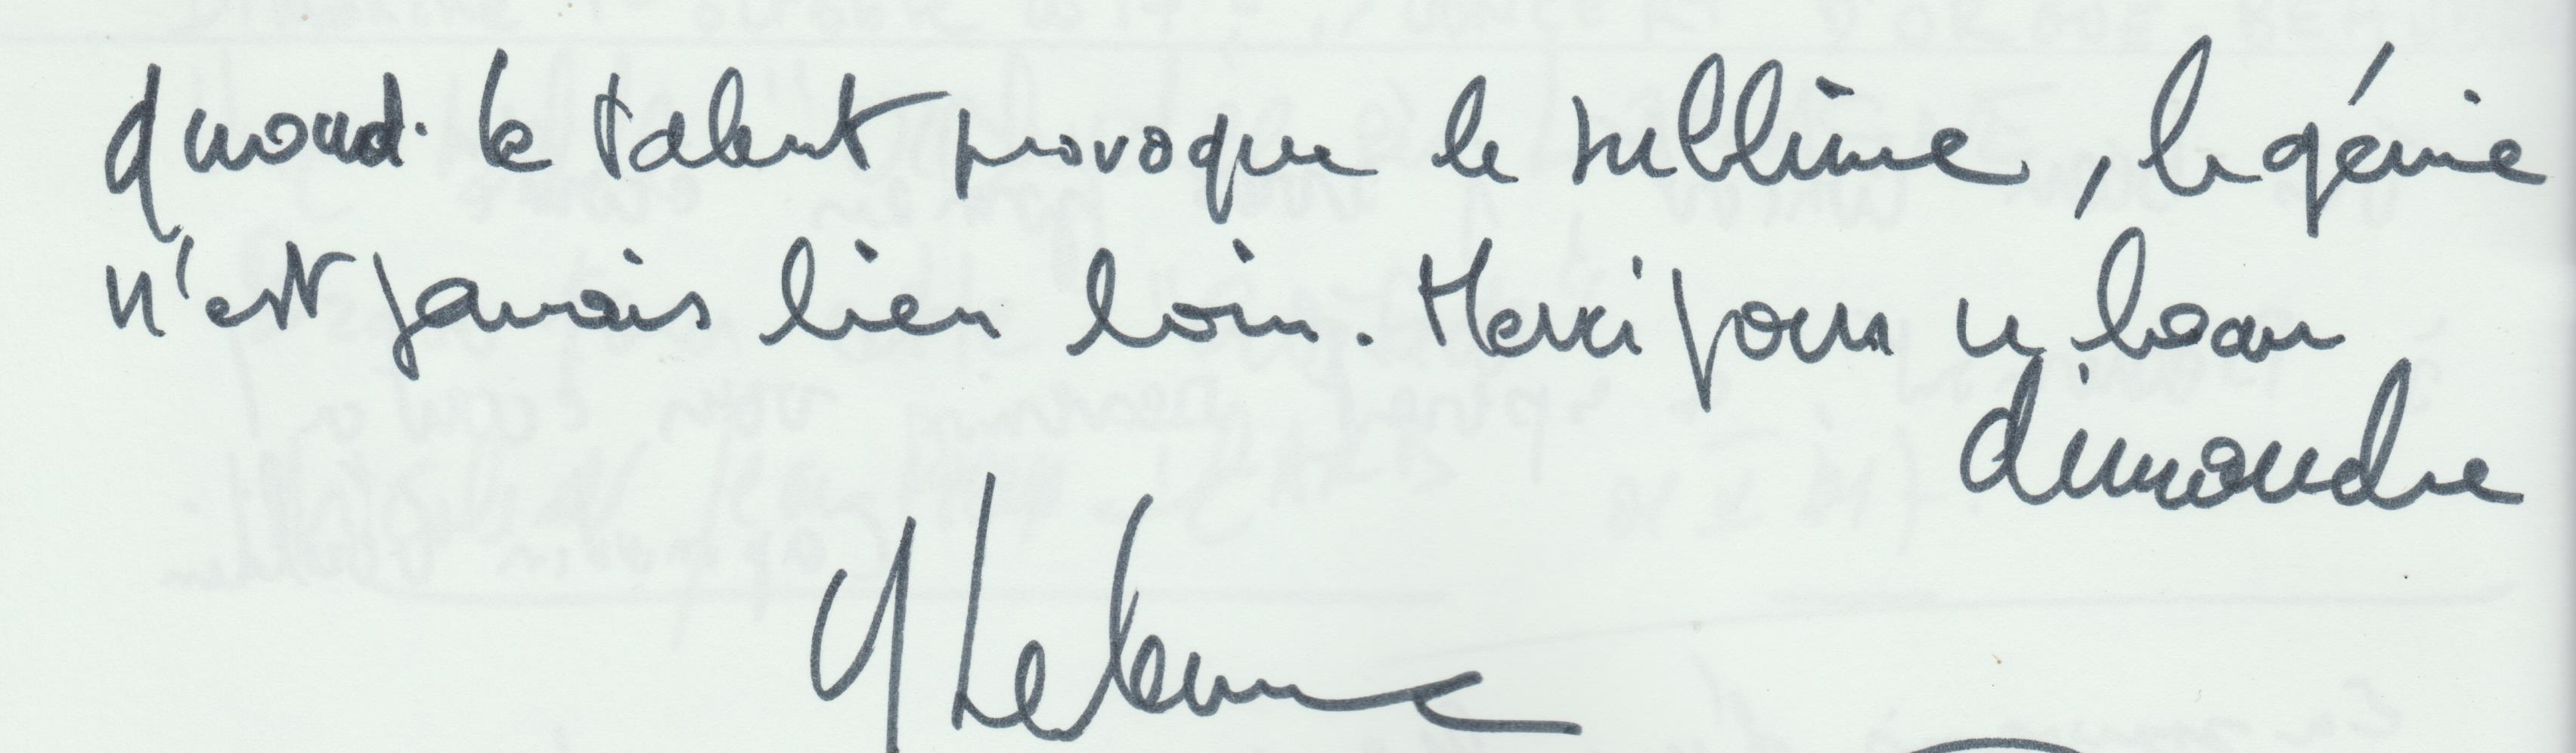 Quand le talent provoque le sublime, le génie
n'est jamais bien loin. Merci pour ce beau
dimanche